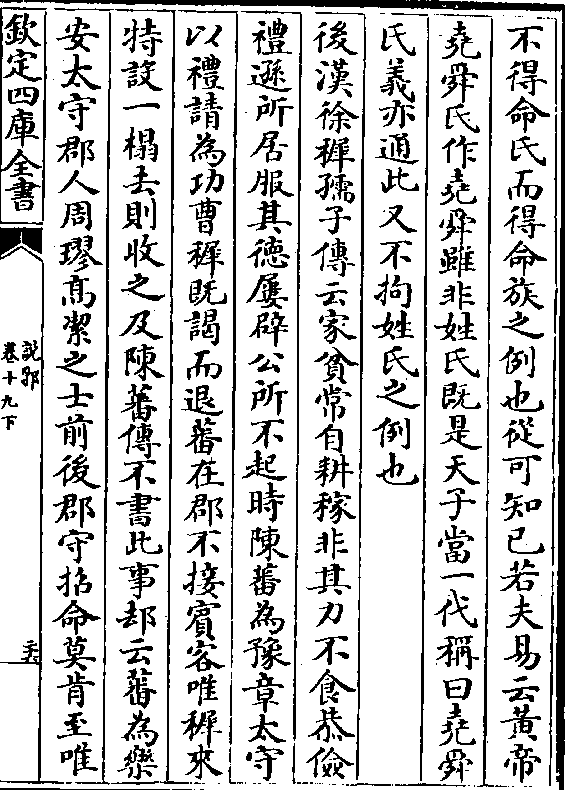 不得命氏而得命族之例也從可知已若夫易云黃帝
堯舜氏作堯舜雖非姓氏既是天子當一代稱曰堯舜
氏義亦通此又不拘姓氏之例也
後漢徐穉孺子傳云家貧常自耕稼非其力不食恭儉
禮遜所居服其徳屢辟公所不起時陳蕃為豫章太守
以禮請為功曹穉既謁而退蕃在郡不接賓客唯穉來
特設一榻去則收之及陳蕃傳不書此事却云蕃為樂
安太守郡人周璆髙潔之士前後郡守招命莫肯至唯
欽定四庫全書
說郛
卷十九下